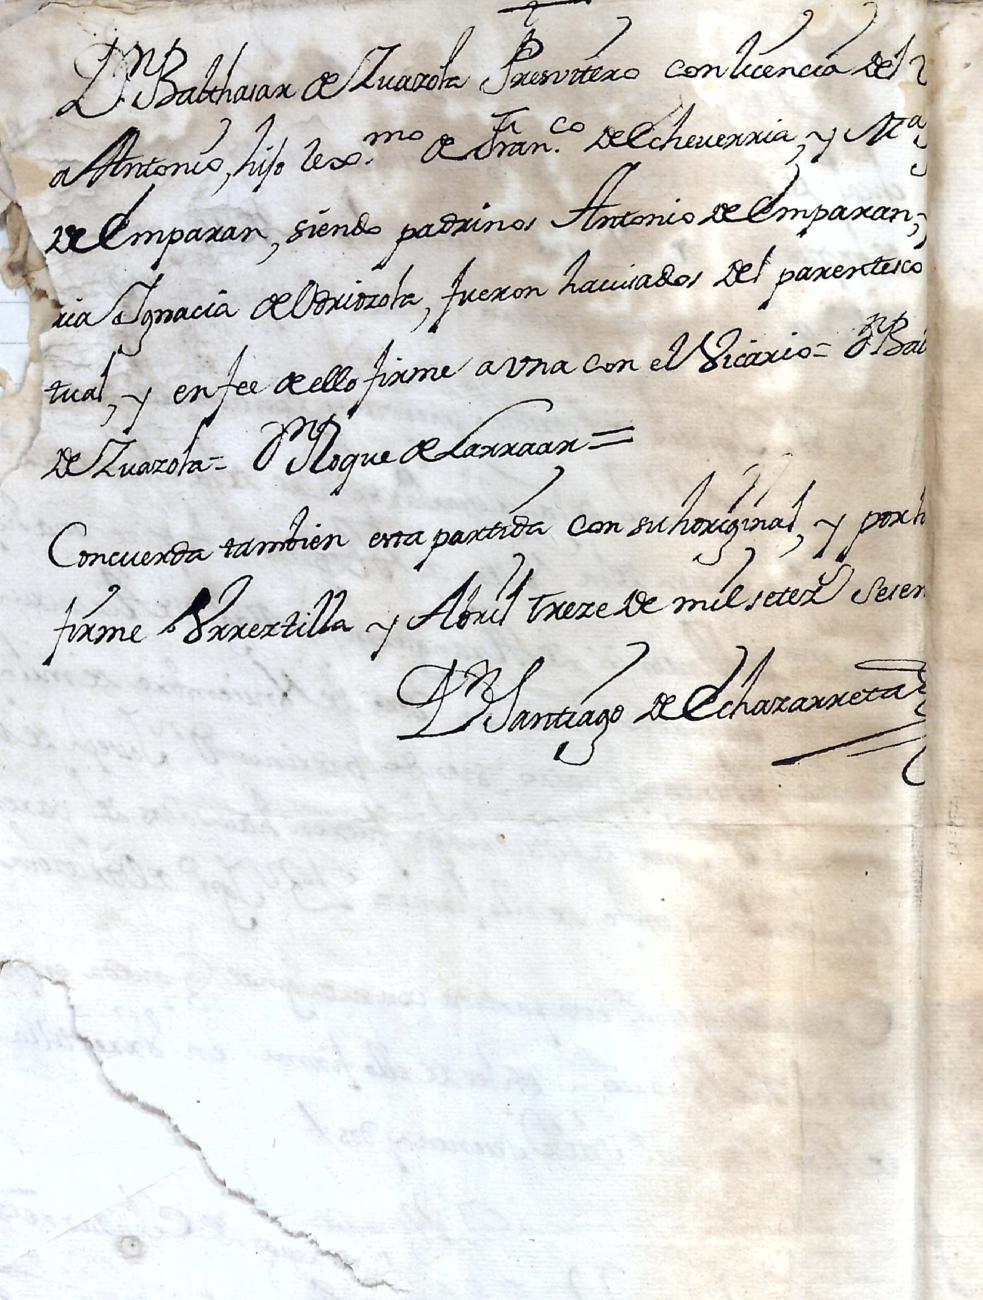 Dn Balthasar de Zuazola Presvitero con licencia del V
a Antonio, hijo lexmo de Franco de Echeverria, y Ma
de Emparan, siendo padrinos Antonio de Emparan, y
ria Ignacia de Odriozola, fueron havisados del parentesco
tual, y en fee de ello firme a una con el Vicario = Dn Bal
de Zuazola = Dn Roque de Larraar =
Concuerda tambien esta partida con su horiginal, y por h
firme Urrextilla y Abril treze de mil setezs Sesen
Dn Santiago de Echazarreta